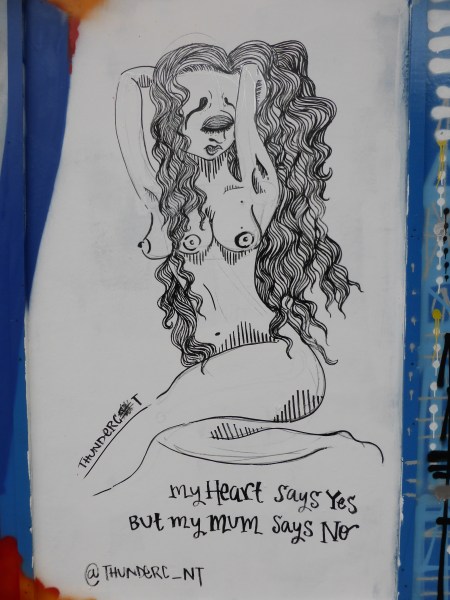 THUNDERC*NT
my Heart says Yes
But my Mum says No
@THUNDERC_NT